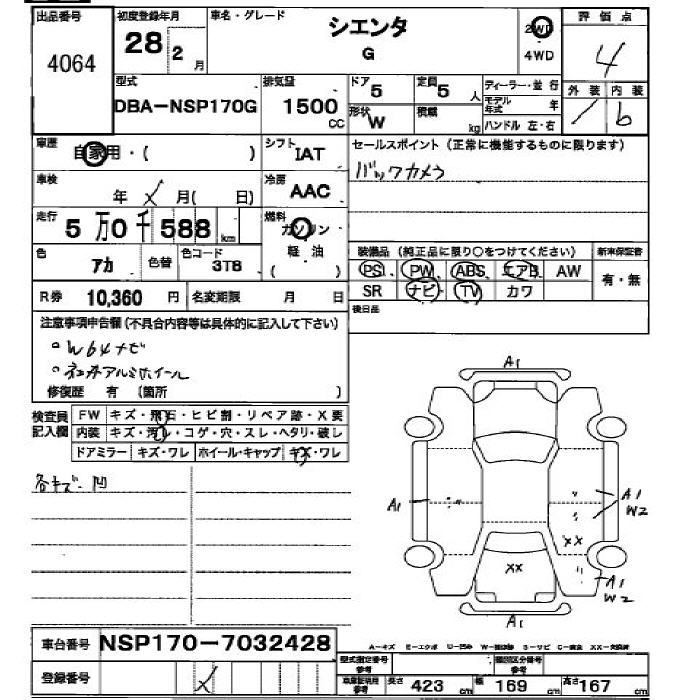 出品番号 4064
初度登録年月 28 2月
車名・グレード シエンタ G
2WD 4WD
評価点 4
外装 内装 b
型式 DBA-NSP170G
排気量 1500 CC
ドア 5
定員 5 人
形状 W
積載 kg
ディーラー・並行
モデル年式 年
ハンドル 左・右
車歴 自家用・( )
シフト IAT
セールスポイント (正常に機能するものに限ります)
バックカメラ
車検 年 月( 日)
冷房 AAC
走行 5万0千588 km
燃料 ガソリン 軽・油 ( )
色 アカ 色替 色コード 3T8
装備品 (純正品に限り○をつけてください) 新車保証書
PS PW ABS エアB AW 有・無
SR ナビ TV カワ
R券 10,360 円 名変期限 月 日
後日品
注意事項申告欄 (不具合内容等は具体的に記入して下さい)
。W64ナビ
。社外アルミホイール
修復歴 有 (箇所 )
検査員記入欄 FW キズ・飛石・ヒビ割・リペア跡・X要
内装 キズ・汚レ・コゲ・穴・スレ・ヘタリ・破レ
ドアミラー キズ・ワレ ホイール・キャップ キズ・ワレ
各キズ 凹
A1
A1
A1
W2
XX
XX
A1
W2
A1
車台番号 NSP170-7032428
登録番号
A-キズ E-エクボ U-凹み W-補修跡 S-サビ C-腐食 XX-交換済
型式指定番号 参考 類別区分番号 参考
車庫証明用 参考 長さ 423 cm 幅 169 cm 高さ 167 cm